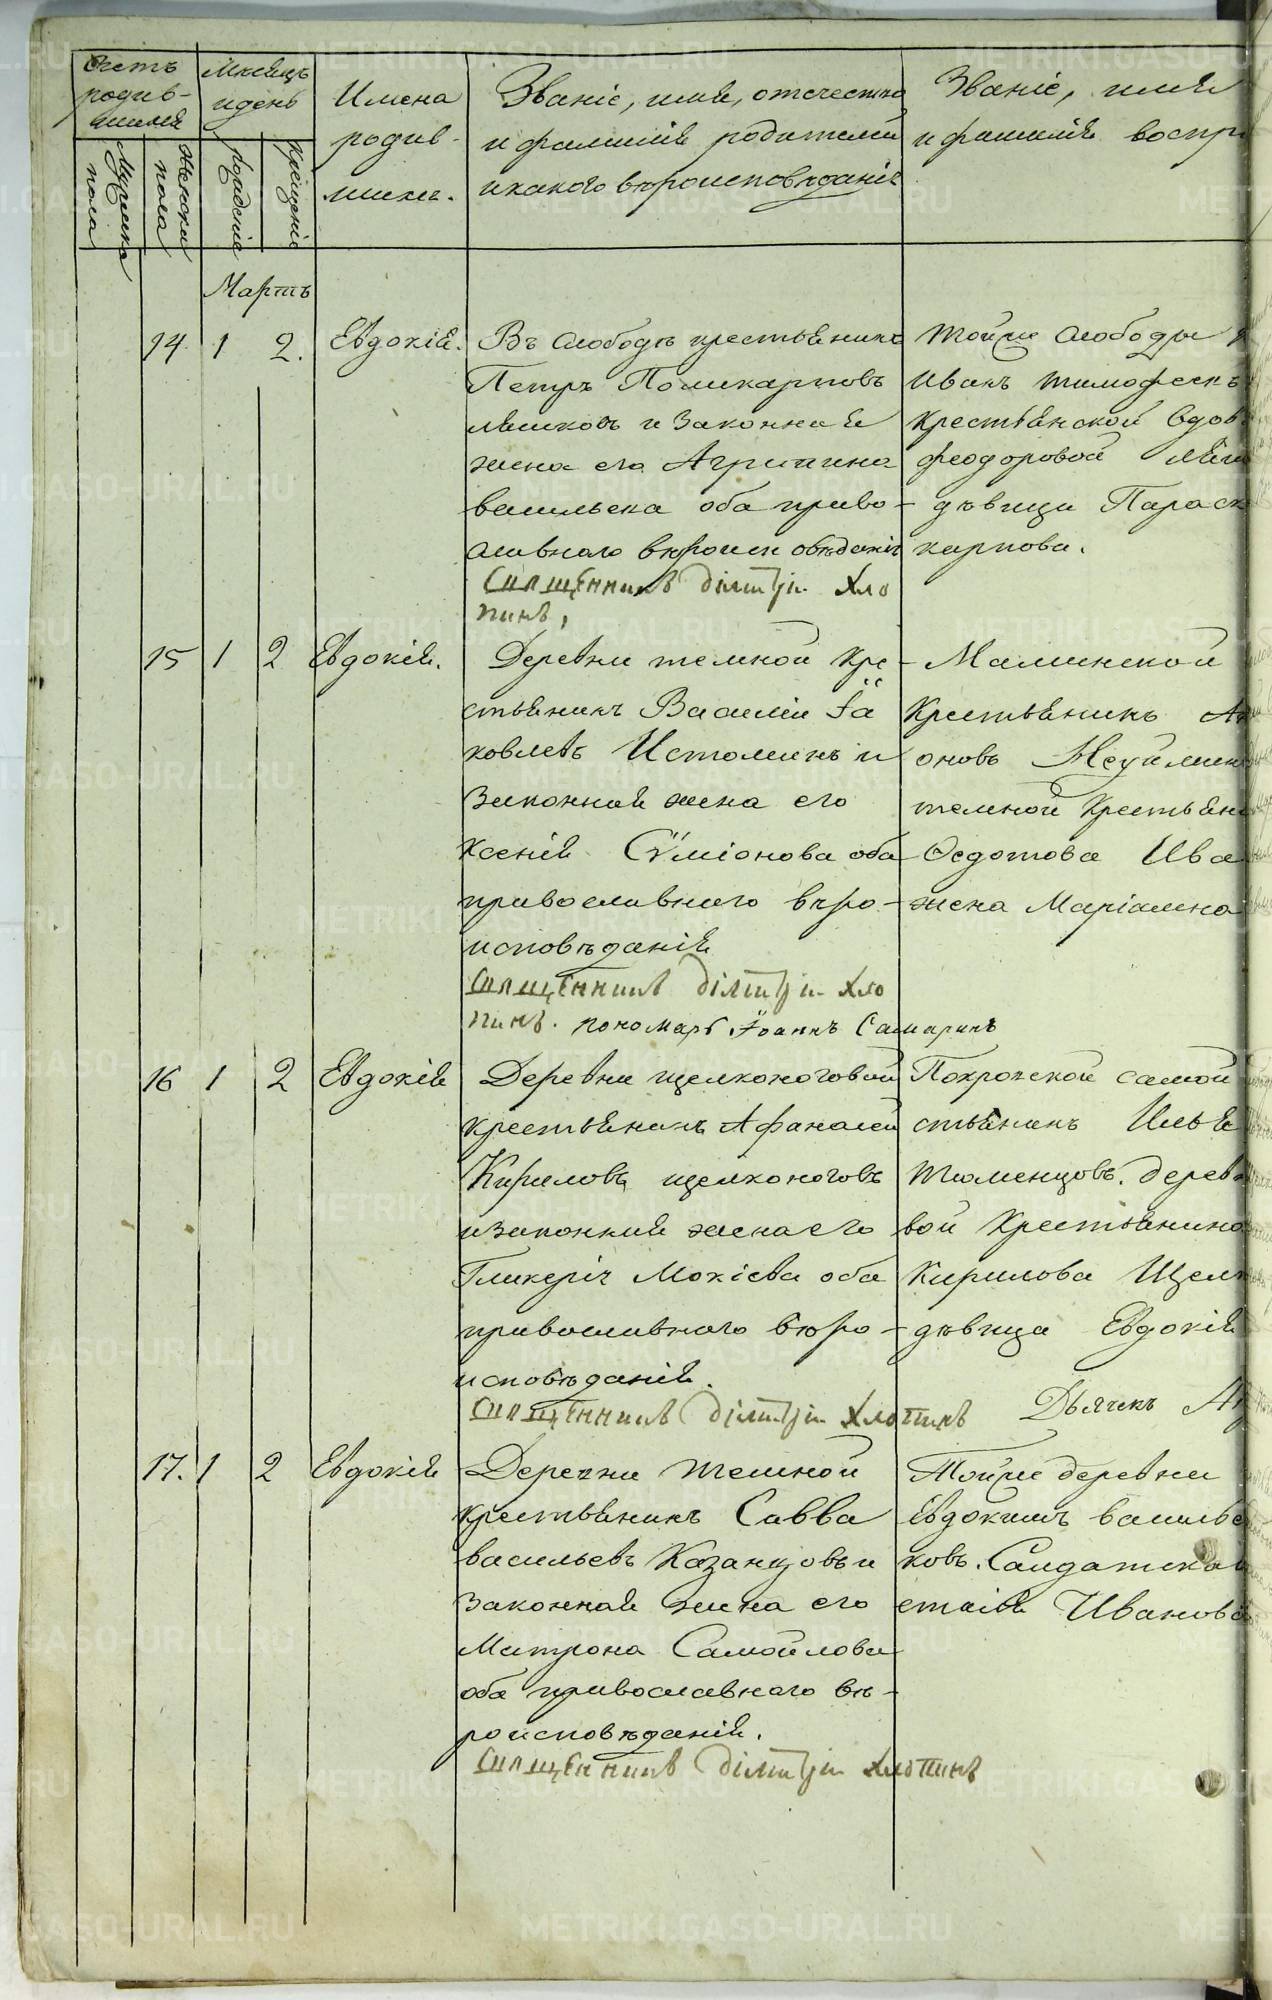 Счетъ родив-шихся
Мѣсяцъ и день
Имена родив-шихъ.
Званіе, имя, отечество и фамилія родителей и какого вѣроисповѣданія
Званіе, имя и фамилія воспр
Мужеска пола
Женска пола
рожденіе
крещеніе
Мартъ
14 1 2. Евдокія. Въ слободѣ крестьянинъ
Петръ Поликарповъ
и законная
жена его Агрипина
васильева оба право-
славнаго вѣроисповѣданія
Священникъ Дімітрій Хло
пинъ,
тойже слободы
Иванъ тимофеевъ
крестьянской вдов
феодоровой
дѣвица Параск
карпова.
15 1 2 Евдокія. Деревни темной кре-
стьянинъ Василіи Іа
ковлевъ Истоминъ и
Законная жена его
Ксенія Сѵміонова оба
православнаго вѣро-
исповѣданія
Священникъ Дімітрій Хло
пинъ. пономарь Іоаннъ Самаринъ
Маминской
Крестьянинъ
оновъ Неуймин
темной крестьян
Ѳедотова Ива
жена Маріамна
16 1 2 Евдокія Деревни щелконоговой
крестьянинъ Афанасей
Кириловъ щелконоговъ
и Законная жена его
Гликерія Мокіева оба
православнаго вѣро-
исповѣданія.
Священникъ Дімітрій Хлопинъ
Покровской самой
стьянинъ Илья
Тюменцовъ. дерев
вой Крестьянина
Кирилова Щелк
дѣвица Евдокія
Дьячекъ
17. 1 2 Евдокія Деревни темной
крестьянинъ Савва
васильевъ Казанцовъ и
Законная жена его
Матрона Самойлова
оба православнаго вѣ-
роисповѣданія.
Священникъ Дімітрій Хлопинъ
Тойже деревни
Евдокимъ василье
ковъ. Салдатска
стасія Иванова
METRIKI.GASO-URAL.RU